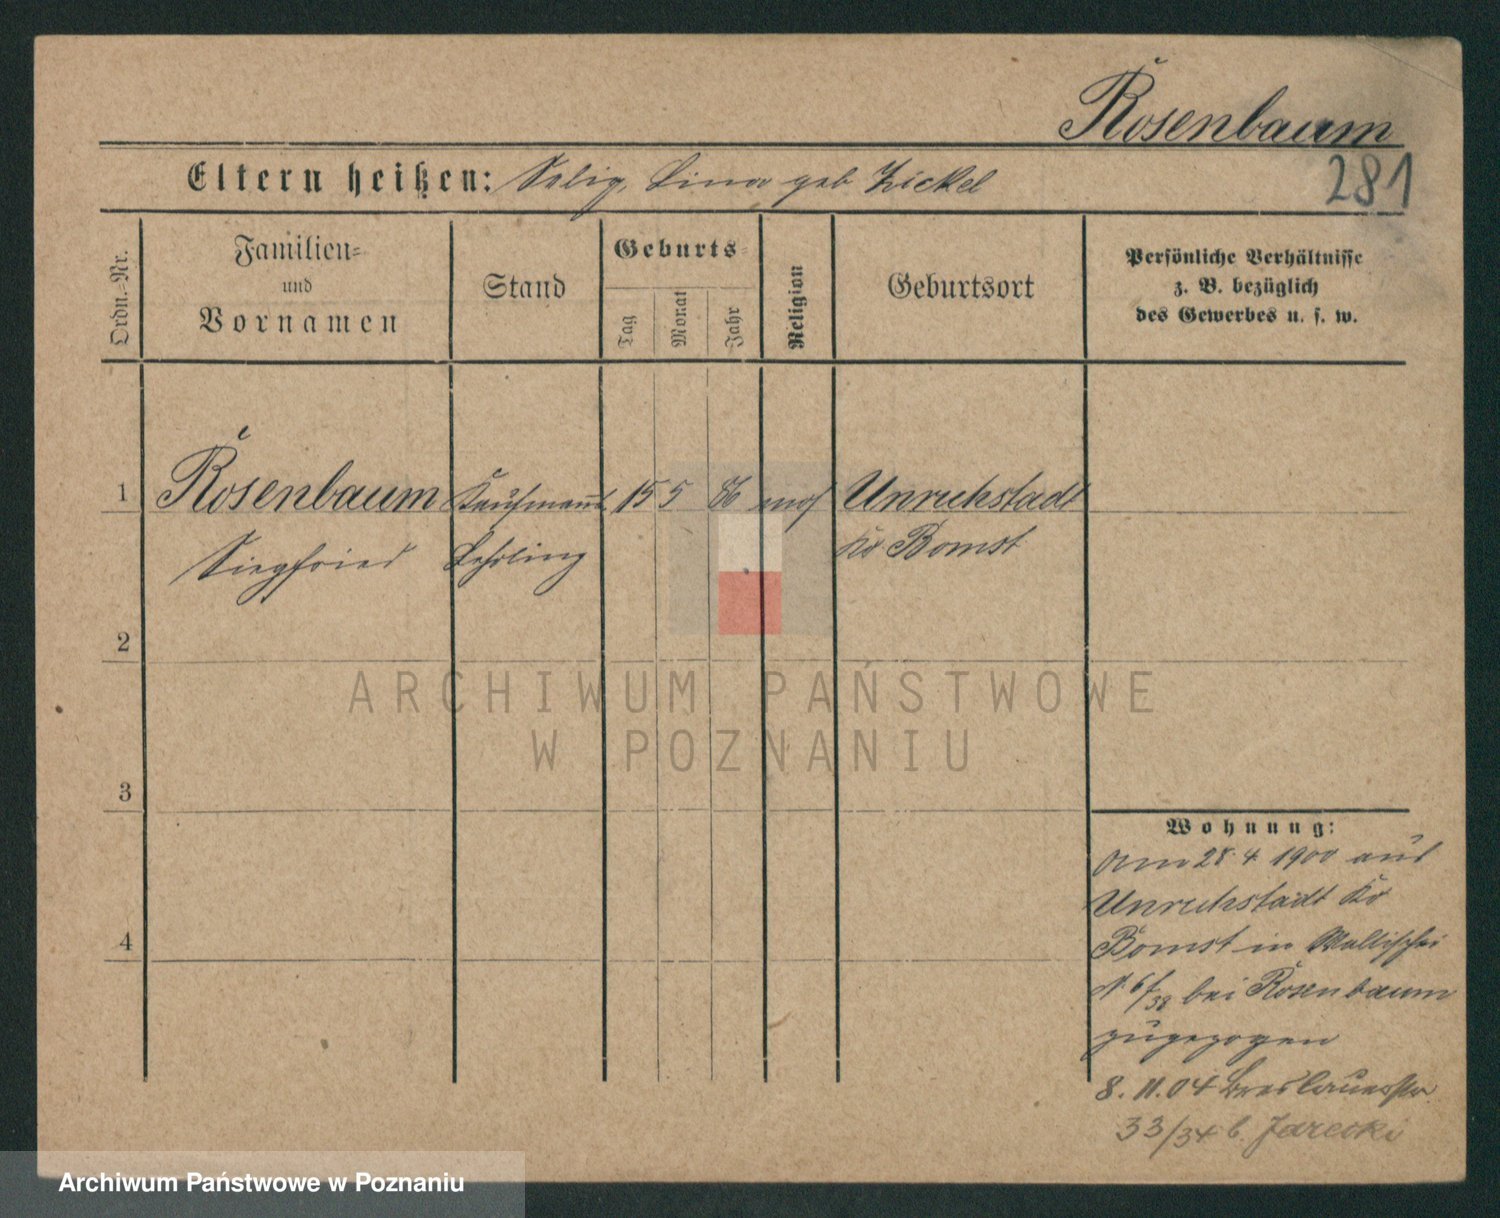 Rosenbaum
281
Eltern heißen: Selig, Lina geb. Zickel
Ordn.-Nr.
Familien- und Vornamen
Stand
Geburts-
Tag
Monat
Jahr
Religion
Geburtsort
Persönliche Verhältnisse
z. B. bezüglich
des Gewerbes u. s. w.
1 Rosenbaum Kaufmanns 15 5 86 mos Unruhstadt
Siegfried Lehrling Kr Bomst
2
3
4
Wohnung:
Am 28. 4. 1900 aus
Unruhstadt Kr
Bomst in Wallischei
N. 6/38 bei Rosenbaum
zugezogen
8. 11. 04 Breslauerstr
33/34 b. Jarecki
ARCHIWUM PAŃSTWOWE
W POZNANIU
Archiwum Państwowe w Poznaniu